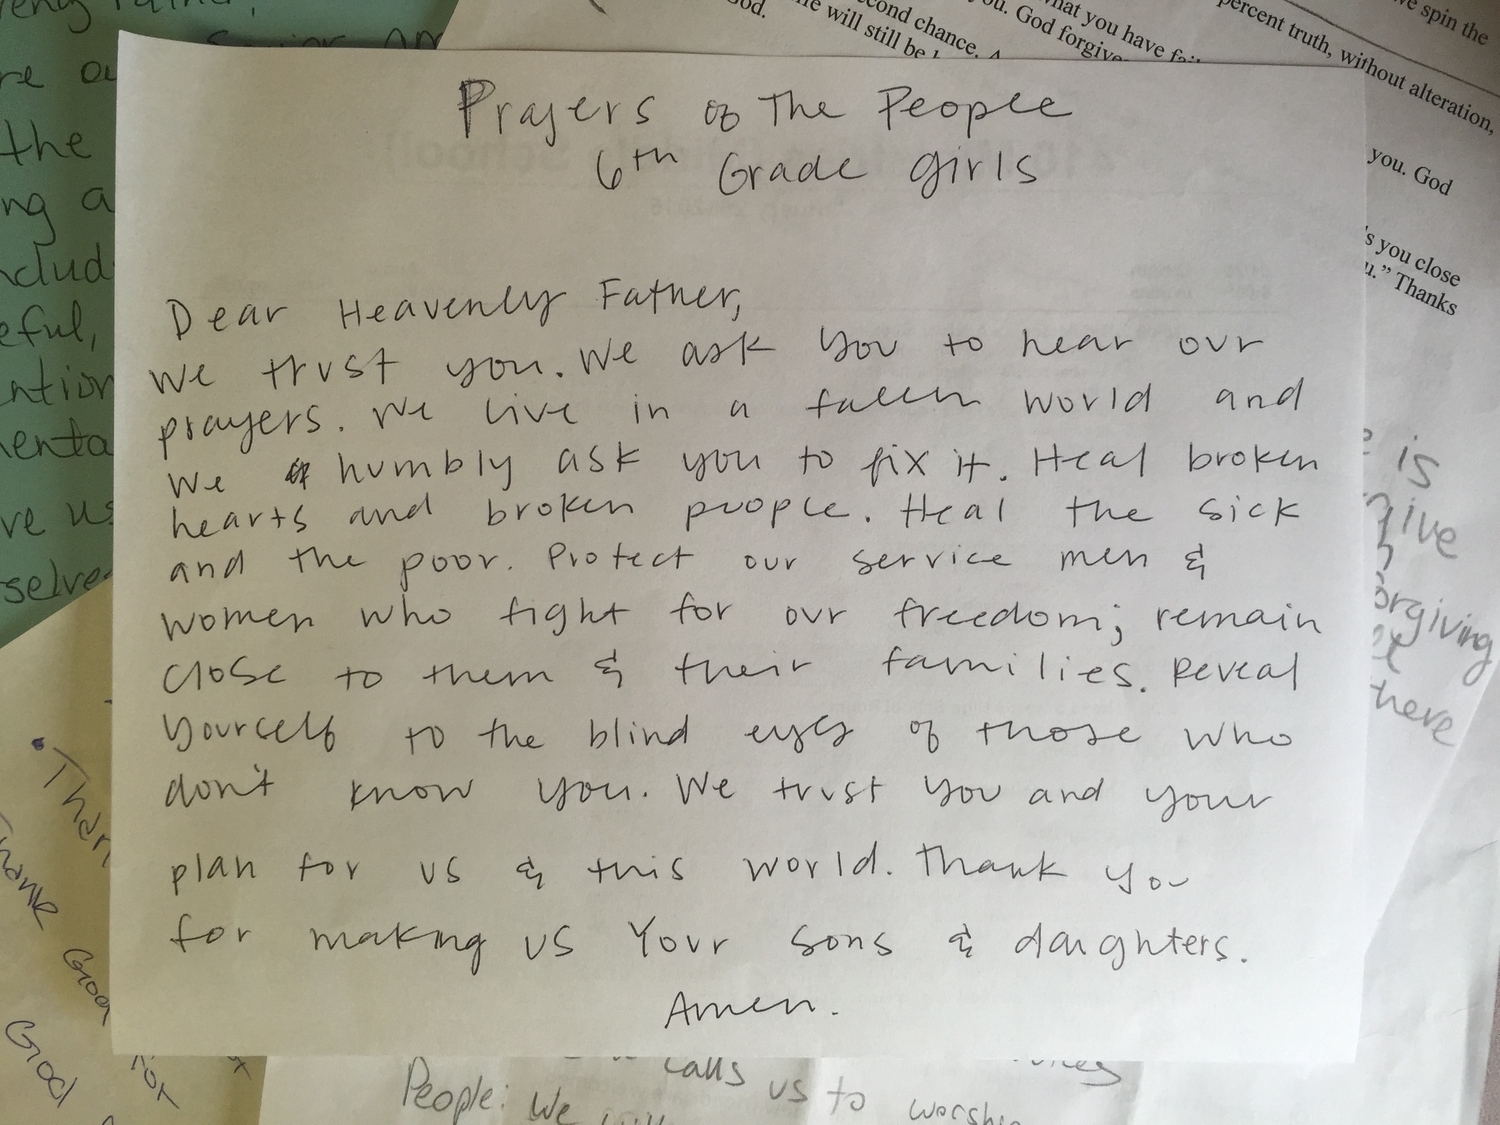 Prayers of The People
6th Grade girls
Dear Heavenly Father,
we trust you. We ask you to hear our
prayers. We live in a fallen world and
we humbly ask you to fix it. Heal broken
hearts and broken people. Heal the sick
and the poor. Protect our service men &
women who fight for our freedom; remain
close to them & their families. Reveal
yourself to the blind eyes of those who
don't know you. We trust you and your
plan for us & this world. Thank you
for making us Your sons & daughters.
Amen.
re
the
ng a
eful,
ve us
God.
he will still be
second chance.
ou. God forgive
what you have
we spin the
percent truth, without alteration,
you. God
's you close
u." Thanks
is
give
orgiving
here
Thank
God
God
for
calls us to worship
People: We